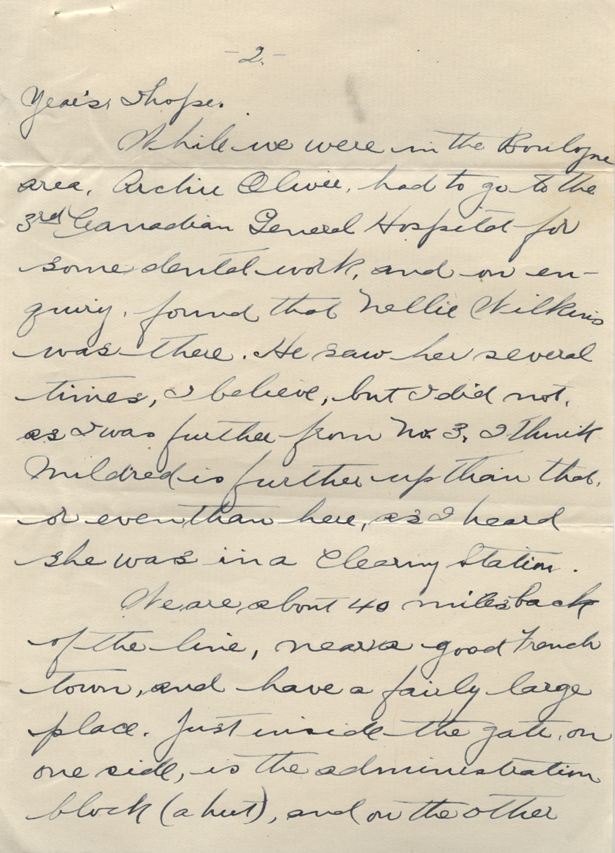 -2-
Year's, I hope.
While we were in the Boulogne
area, Archie Oliver, had to go to the
3rd Canadian General Hospital for
some dental work, and on en-
quiry, found that Nellie Wilkins
was there. He saw her several
times, I believe, but I did not,
as I was further from No. 3. I think
Mildred is further up than that,
or even than here, as I heard
she was in a Clearing Station.
We are about 40 miles back
of the line, near a good French
town, and have a fairly large
place. Just inside the gate, on
one side, is the administration
block (a hut), and on the other